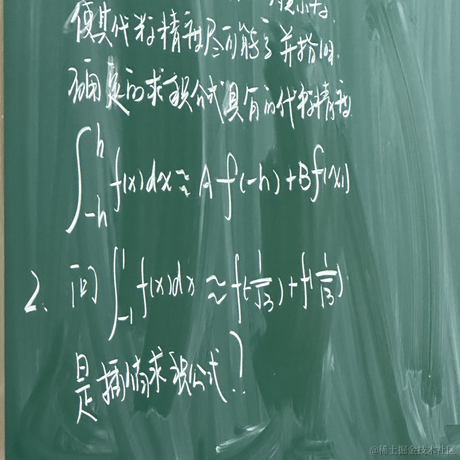 使其代数精确尽可能高并指明
确定的求积公式具有的代数精度
∫_{-h}^{h} f(x)dx ≈ Af(-h)+Bf(x₁)
2、问 ∫_{-1}^{1} f(x)dx ≈ f(-1/√3)+f(1/√3)
是插值求积公式?
@稀土掘金技术社区